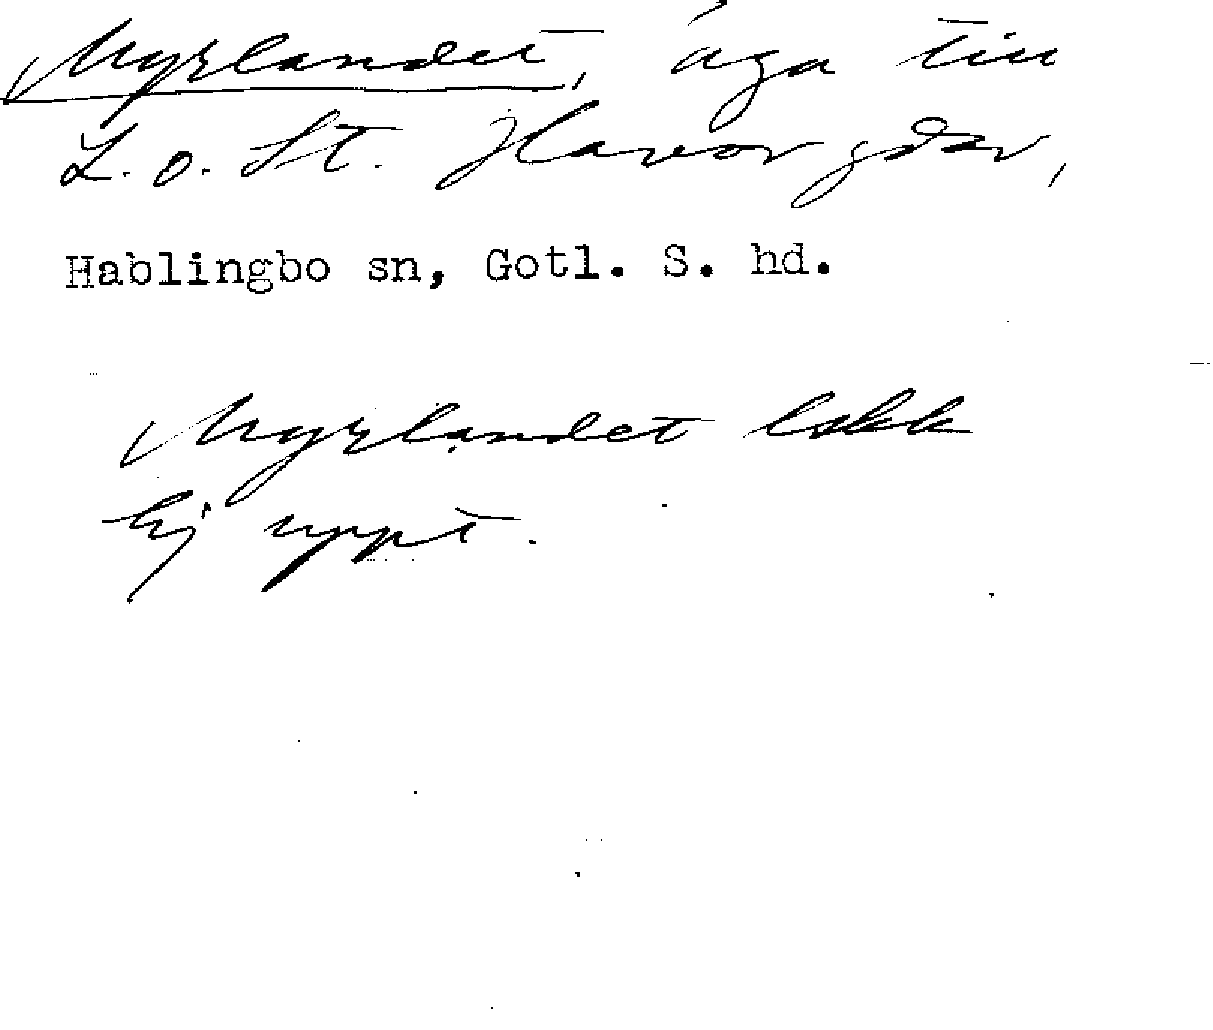 Myrlandet, äga till
L. o. St. Havor gdar,
Hablingbo sn, Gotl. S. hd.
Myrlandet lokk
Ej uppt.